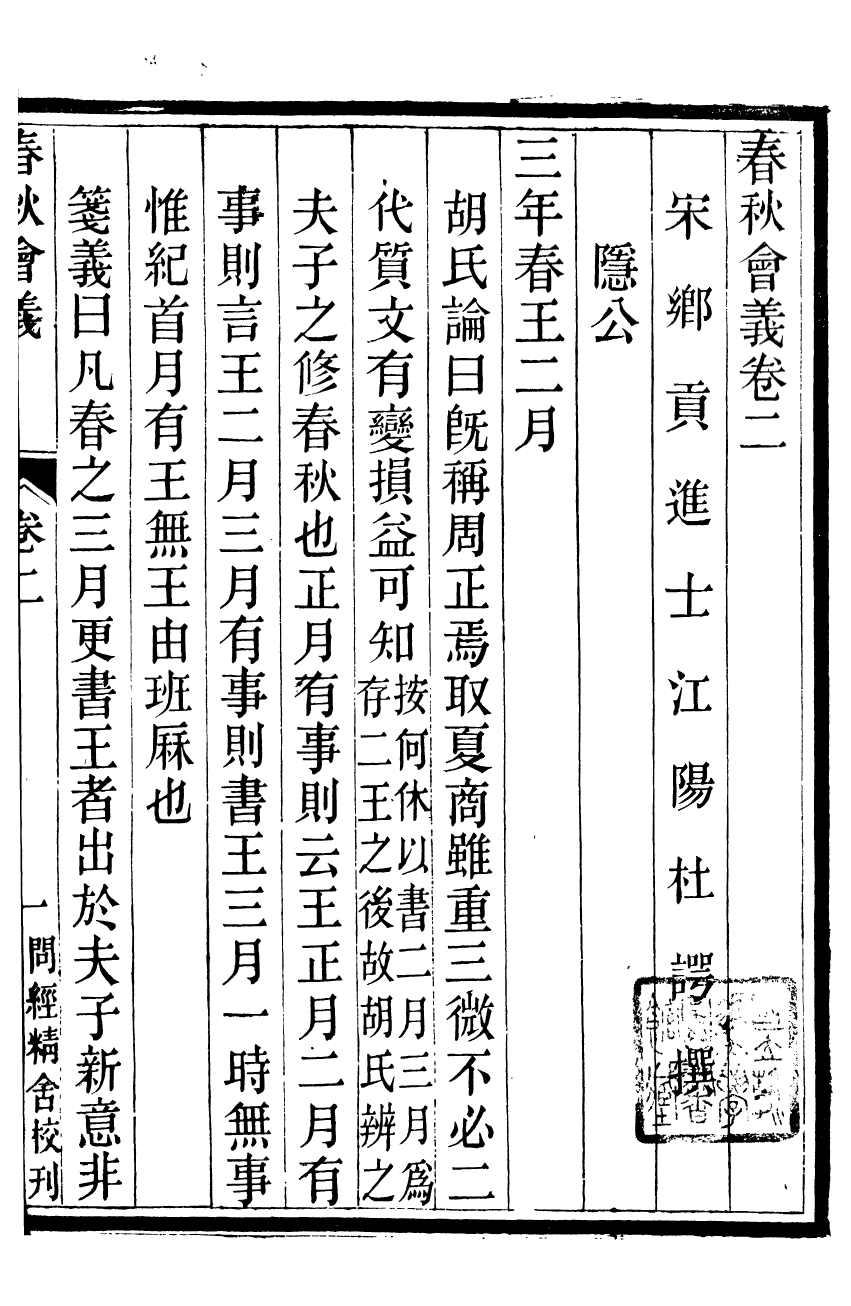 春秋會義卷二
宋鄉貢進士江陽杜諤撰
隱公
三年春王二月
胡氏論曰既稱周正焉取夏商雖重三微不必二
代質文有變損益可知按何休以書二月三月爲存二王之後故胡氏辨之
夫子之修春秋也正月有事則云王正月二月有
事則言王二月三月有事則書王三月一時無事
惟紀首月有王無王由班厤也
箋義曰凡春之三月更書王者出於夫子新意非
春秋會義
卷二
一
問經精舍校刊